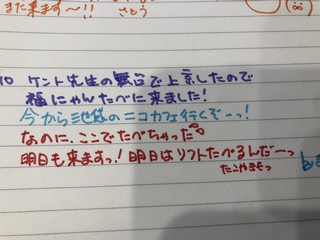 また来ます〜!! さとう
10 ケント先生の舞台で上京したので
福にゃんたべに来ました!
今から池袋のニコカフェ行くぞーっ!
なのに、ここでたべちゃった
明日も来ますっ! 明日はリフトたべるんだーっ
たこやまもっ